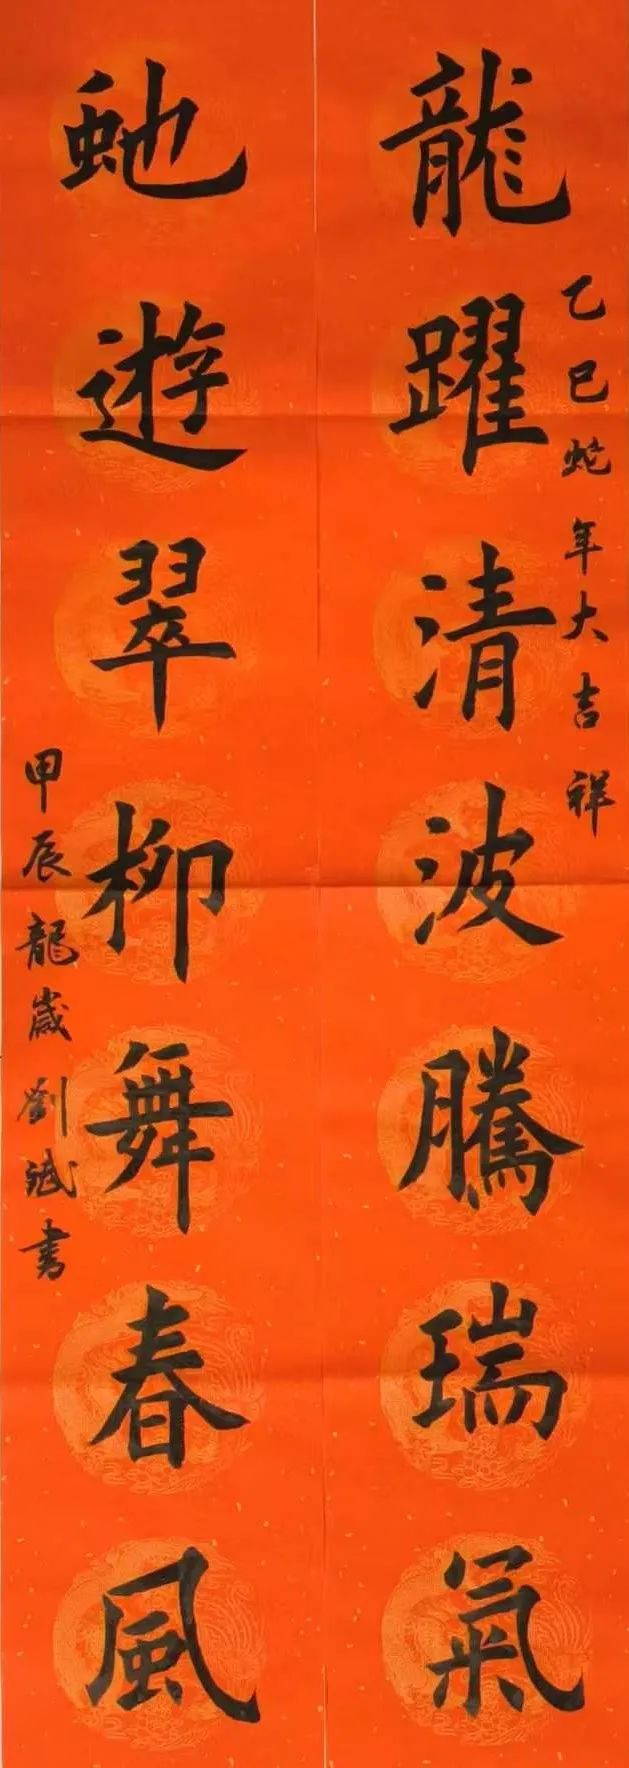 龍躍清波騰瑞氣
乙巳蛇年大吉祥
虵遊翠柳舞春風
甲辰龍歲劉斌書